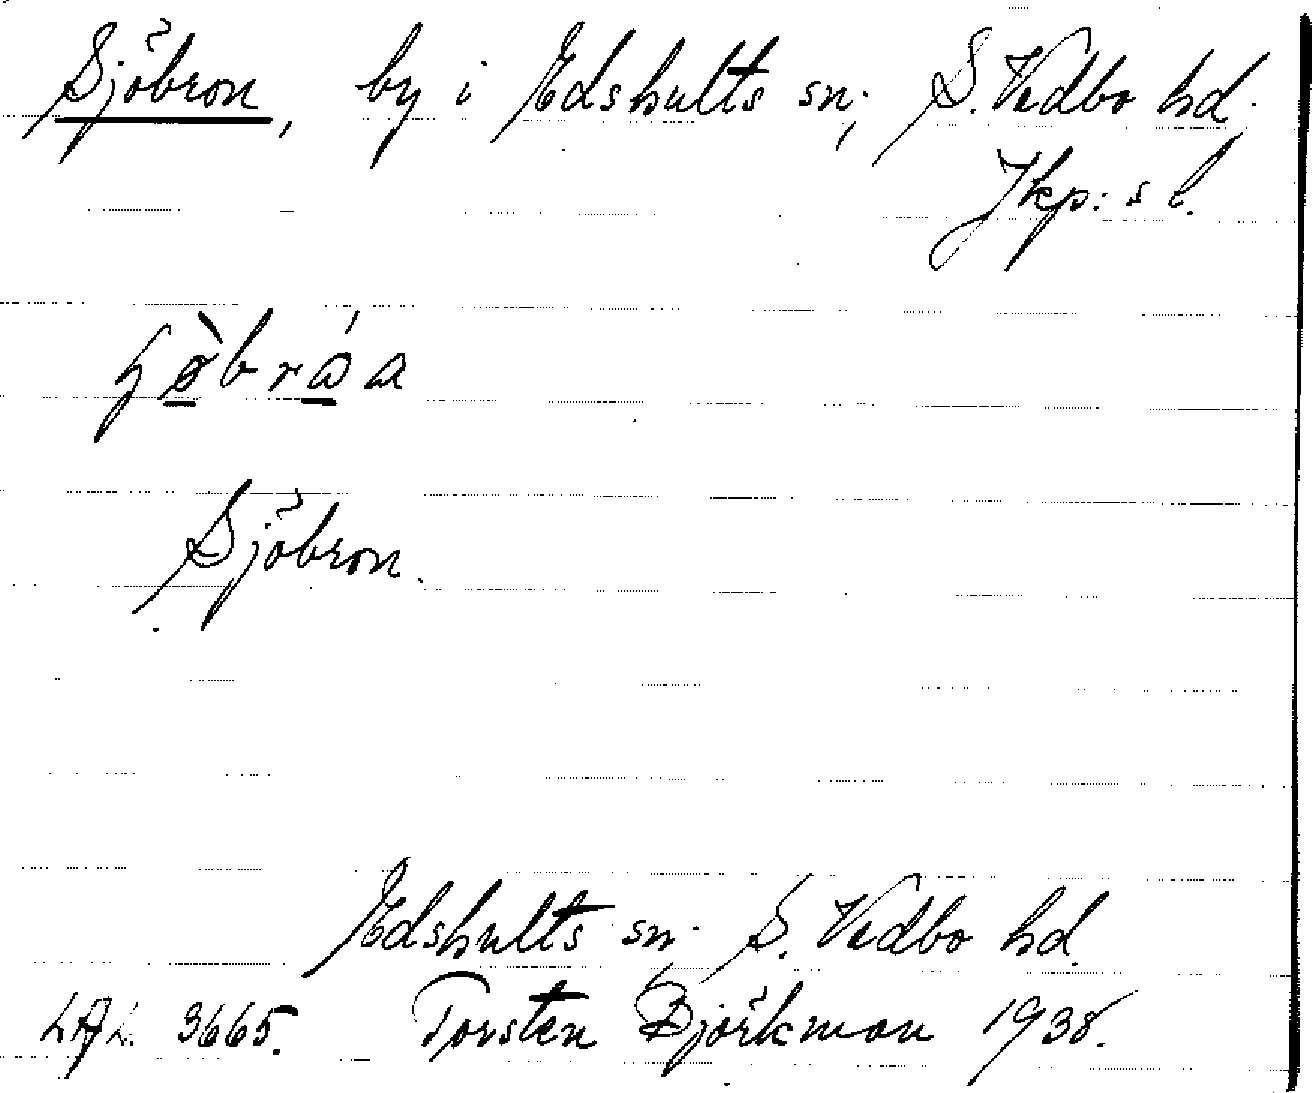 Sjöbron, by i Edshults sn; S. Vedbo hd.
Jkp:s l.
Sjöbron.
Edshults sn. S. Vedbo hd.
LAL 3665. Torsten Björkman 1938.